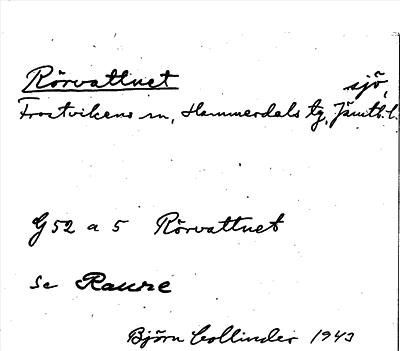 Rörvattnet sjö,
Frostvikens sn, Hammerdals tg, Jämtl. l.
G 52 a 5 Rörvattnet
Se Raure
Björn Collinder 1943